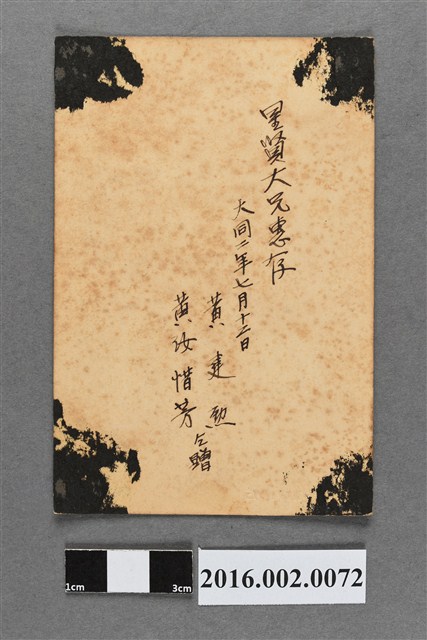 星賢大兄惠存
大同二年七月十二日
黃建勲
黃汝惜芳
仝贈
1cm
3cm
2016.002.0072